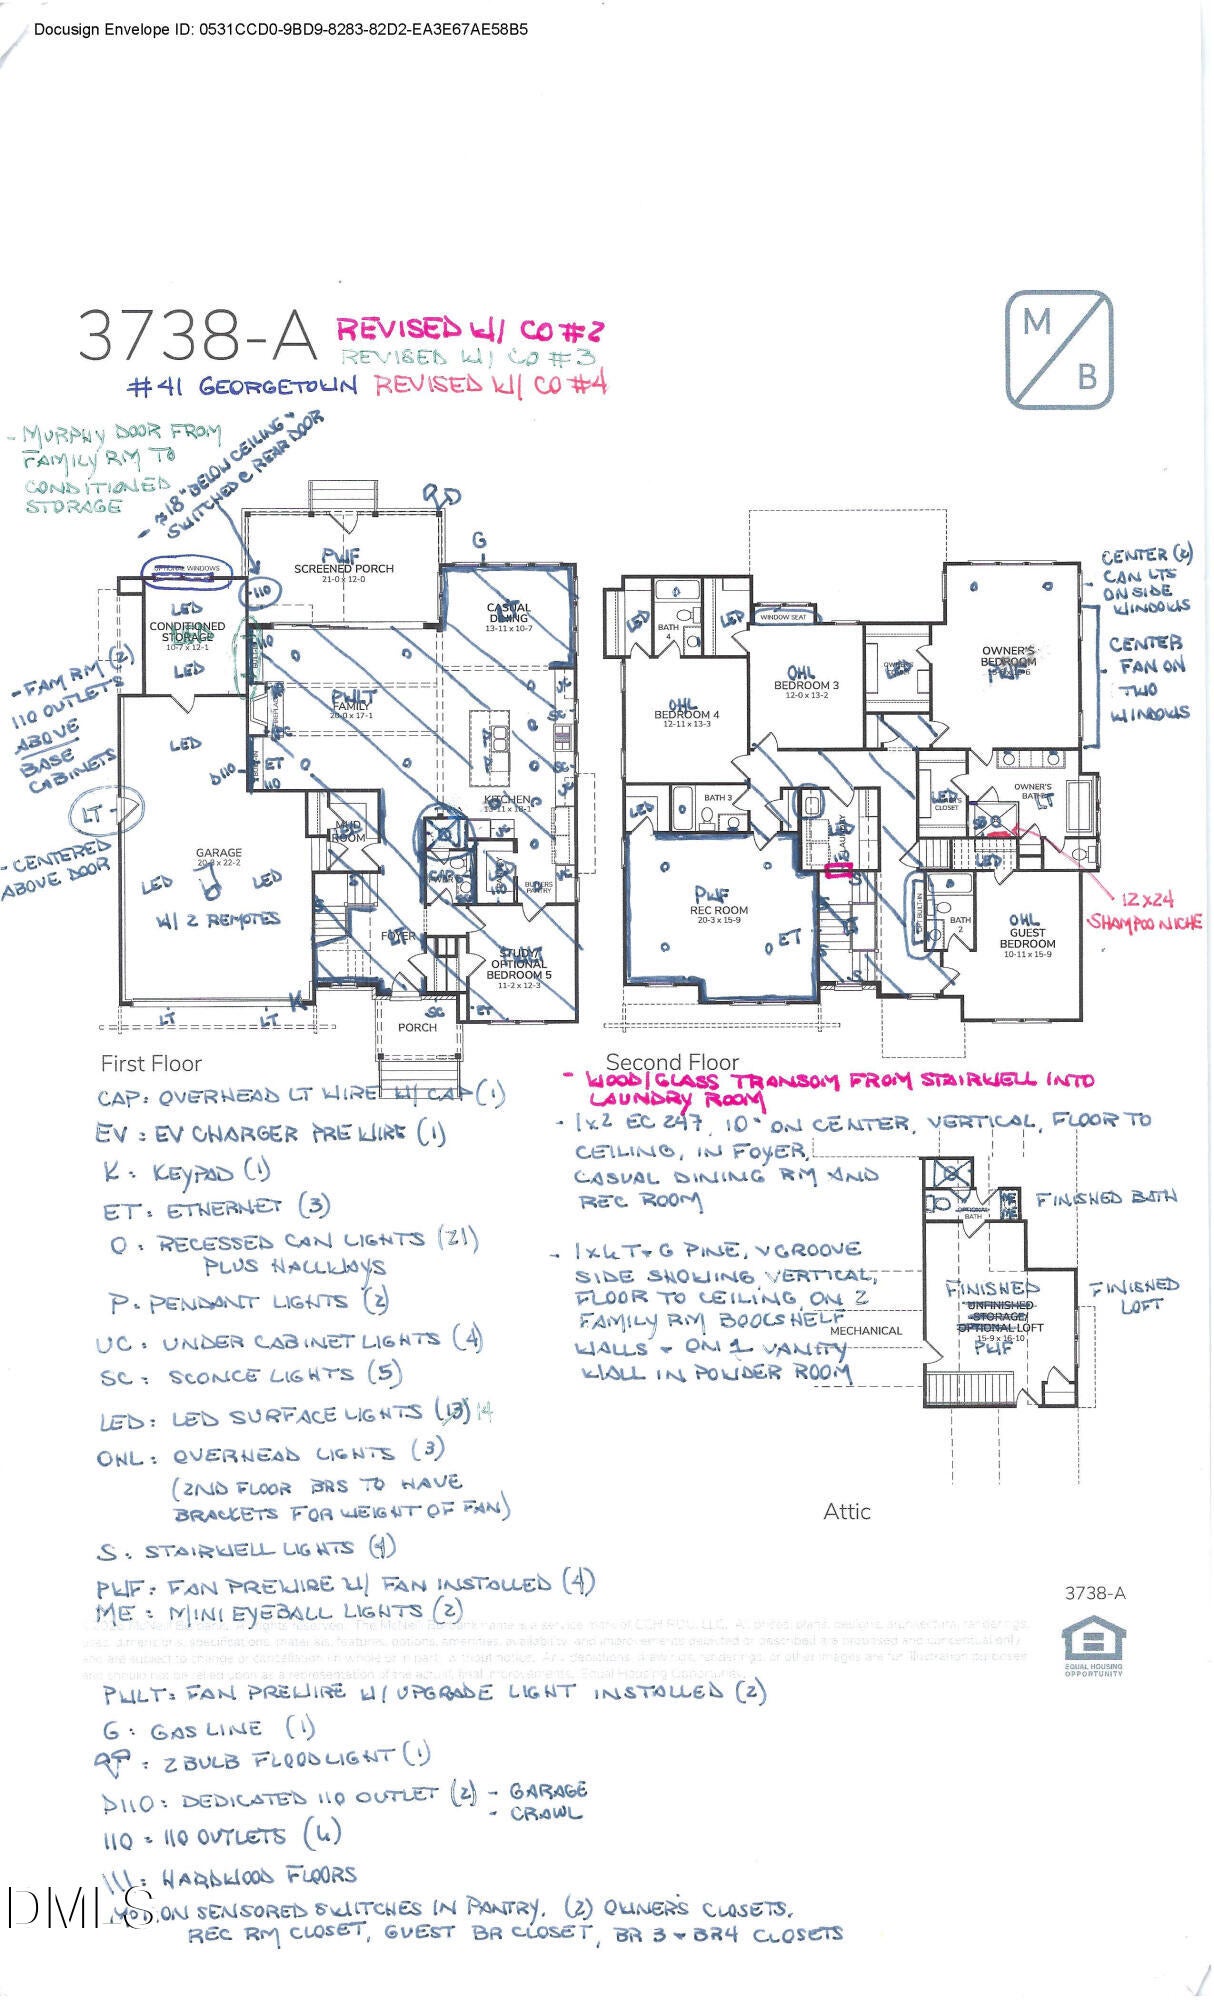 Docusign Envelope ID: 0531CCD0-9BD9-8283-82D2-EA3E67AE58B5
3738-A
REVISED W/ CO #2
REVISED W/ CO #3
#41 GEORGETOWN REVISED W/ CO #4
M
B
- MURPHY DOOR FROM
FAMILY RM TO
CONDITIONED
STORAGE
- ≈18" BELOW CEILING"
SWITCHED @ REAR DOOR
- FAM RM (2)
110 OUTLETS
ABOVE
BASE
CABINETS
LT
- CENTERED
ABOVE DOOR
OPTIONAL WINDOWS
LED
CONDITIONED
STORAGE
10-7 x 12-1
LED
110
PWF
SCREENED PORCH
21-0 x 12-0
G
CASUAL
DINING
13-11 x 10-7
LT
PWLT
FAMILY
20-0 x 17-1
110
ET
110
D110
LED
KITCHEN
13-11 x 18-1
UC
SC
SC
UC
UC
MUD
ROOM
LED
GARAGE
20-3 x 22-2
LED
LED
W/ 2 REMOTES
CAP
PANTRY
BUTLER'S
PANTRY
FOYER
LT
S
S
STUDY/
OPTIONAL
BEDROOM 5
11-2 x 12-3
ET
SC
K
LT
LT
PORCH
First Floor
LED
BATH
4
LED
WINDOW SEAT
OHL
BEDROOM 3
12-0 x 13-2
OHL
BEDROOM 4
12-11 x 13-3
LED
OWNER'S
BEDROOM
PWF
CENTER (2)
CAN LTS
ON SIDE
WINDOWS
CENTER
FAN ON
TWO
WINDOWS
LED
BATH 3
LED
LAUNDRY
LED
OWNER'S
CLOSET
OWNER'S
BATH
LT
LED
12 x 24
SHAMPOO NICHE
PWF
REC ROOM
20-3 x 15-9
ET
S
S
S
OPT. BUILT-IN
BATH
2
OHL
GUEST
BEDROOM
10-11 x 15-9
Second Floor
- WOOD/GLASS TRANSOM FROM STAIRWELL INTO
LAUNDRY ROOM
- 1x2 EC 247, 10" ON CENTER, VERTICAL, FLOOR TO
CEILING, IN FOYER,
CASUAL DINING RM AND
REC ROOM
- 1x6 T+G PINE, VGROOVE
SIDE SHOWING VERTICAL,
FLOOR TO CEILING ON 2
FAMILY RM BOOKSHELF
WALLS + ON 1 VANITY
WALL IN POWDER ROOM
OPTIONAL
BATH
ME
ME
FINISHED BATH
FINISHED
UNFINISHED
STORAGE/
OPTIONAL LOFT
15-9 x 16-10
PWF
FINISHED
LOFT
MECHANICAL
Attic
CAP: OVERHEAD LT WIRE W/ CAP (1)
EV: EV CHARGER PREWIRE (1)
K: KEYPAD (1)
ET: ETHERNET (3)
O: RECESSED CAN LIGHTS (21)
PLUS HALLWAYS
P: PENDANT LIGHTS (2)
UC: UNDER CABINET LIGHTS (4)
SC: SCONCE LIGHTS (5)
LED: LED SURFACE LIGHTS (13) 14
OHL: OVERHEAD LIGHTS (3)
(2ND FLOOR BRS TO HAVE
BRACKETS FOR WEIGHT OF FAN)
S: STAIRWELL LIGHTS (4)
PWF: FAN PREWIRE W/ FAN INSTALLED (4)
ME: MINI EYEBALL LIGHTS (2)
PWLT: FAN PREWIRE W/ UPGRADE LIGHT INSTALLED (2)
G: GAS LINE (1)
: 2 BULB FLOODLIGHT (1)
D110: DEDICATED 110 OUTLET (2) - GARAGE
- CRAWL
110 = 110 OUTLETS (4)
\\\: HARDWOOD FLOORS
MOTION SENSORED SWITCHES IN PANTRY, (2) OWNER'S CLOSETS,
REC RM CLOSET, GUEST BR CLOSET, BR 3 + BR4 CLOSETS
3738-A
EQUAL HOUSING
OPPORTUNITY
DMLS